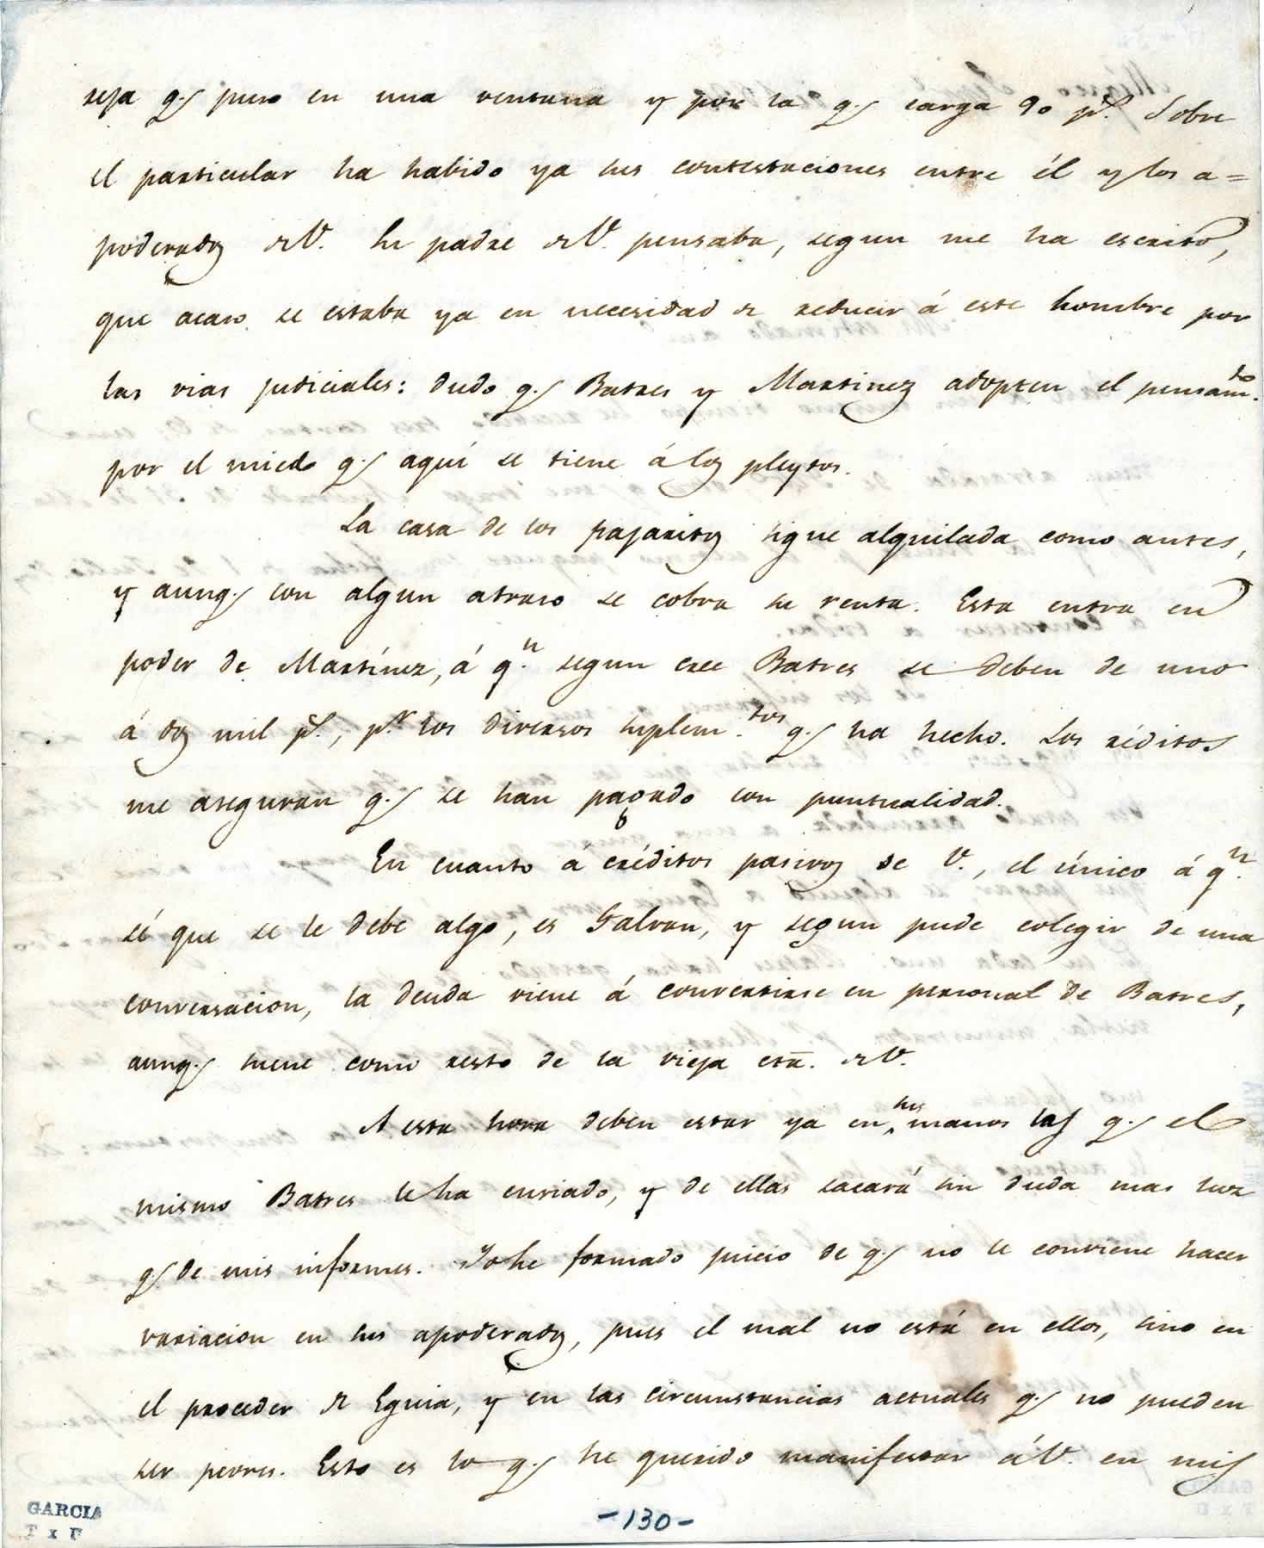 reja q.e puso en una ventana y por la q.e carga 90 p.s Sobre
el particular ha habido ya sus contestaciones entre él y los a=
poderados de V. Su padre de V. pensaba, segun me ha escrito,
que acaso se estaba ya en necesidad de reducir á este hombre por
las vias judiciales: dudo q.e Batres y Martinez adopten el pensam.to
por el miedo q.e aquí se tiene á los pleytos.
La casa de los pajaritos sigue alquilada como antes,
y aunq.e con algun atraso se cobra su renta. Esta entra en
poder de Martínez, á q.n segun cree Batres se deben de uno
á dos mil p.s, p.r los diversos suplem.tos q.e ha hecho. Los réditos
me aseguran q.e se han pagado con puntualidad.
En cuanto á créditos pasivos de V., el único á q.n
sé que se le debe algo, es Galvan, y segun pude colegir de una
conversacion, la deuda viene á convertirse en personal de Batres,
aunq.e tiene como resto de la vieja cta. de V.
A esta hora deben estar ya en sus manos las q.e el
mismo Batres le ha enviado, y de ellas sacará sin duda mas luz
q.e de mis informes. Yo he formado juicio de q.e no le conviene hacer
variacion en sus apoderados, pues el mal no está en ellos, sino en
el proceder de Eguia, y en las circunstancias actuales q.e no pueden
ser peores. Esto es lo q.e he querido manifestar á V. en mis
-130-
GARCIA